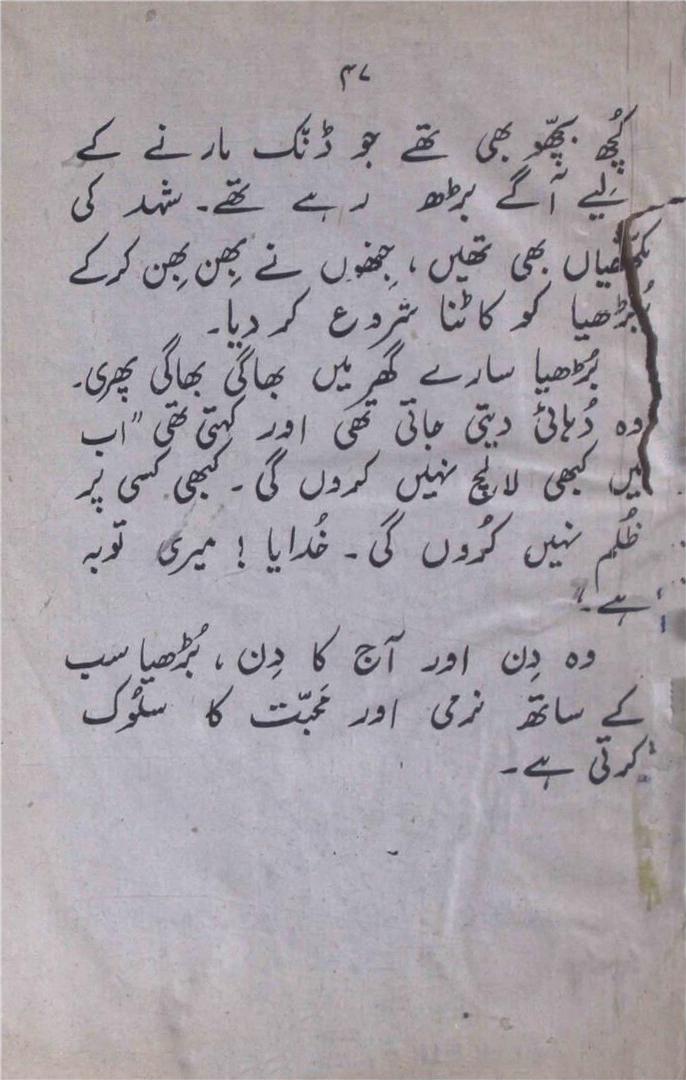 ۴۷
کُچھ بچھّو بھی تھے جو ڈنک مارنے کے
لِیے آگے بڑھ رہے تھے۔ شہد کی
مکھّیاں بھی تھیں، جِنھوں نے بِھن بِھن کرکے
بُڑھیا کو کاٹنا شروع کر دیا۔
بُڑھیا سارے گھر میں بھاگی بھاگی پھری۔
وہ دُہائی دیتی جاتی تھی اور کہتی تھی "اب
میں کبھی لالچ نہیں کروں گی۔ کبھی کسی پر
ظُلم نہیں کرُوں گی۔ خُدایا! میری توبہ
ہے۔"
وہ دِن اور آج کا دِن، بُڑھیا سب
کے ساتھ نرمی اور مَحبّت کا سلُوک
کرتی ہے۔